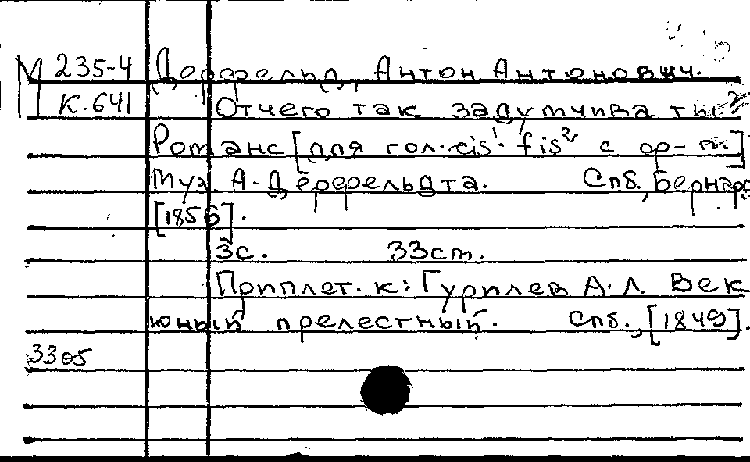 М 235-4 Дерфельд, Антон Антонович.
К.641 Отчего так задумчива ты?
Романс [для гол. cis¹-fis² с ф-п.]
Муз. А. Дерфельдта. Спб., Бернард
[1856].
3с. 33см.
Приплет. к: Гурилев А.Л. Век
юный прелестный. Спб., [1849].
3305